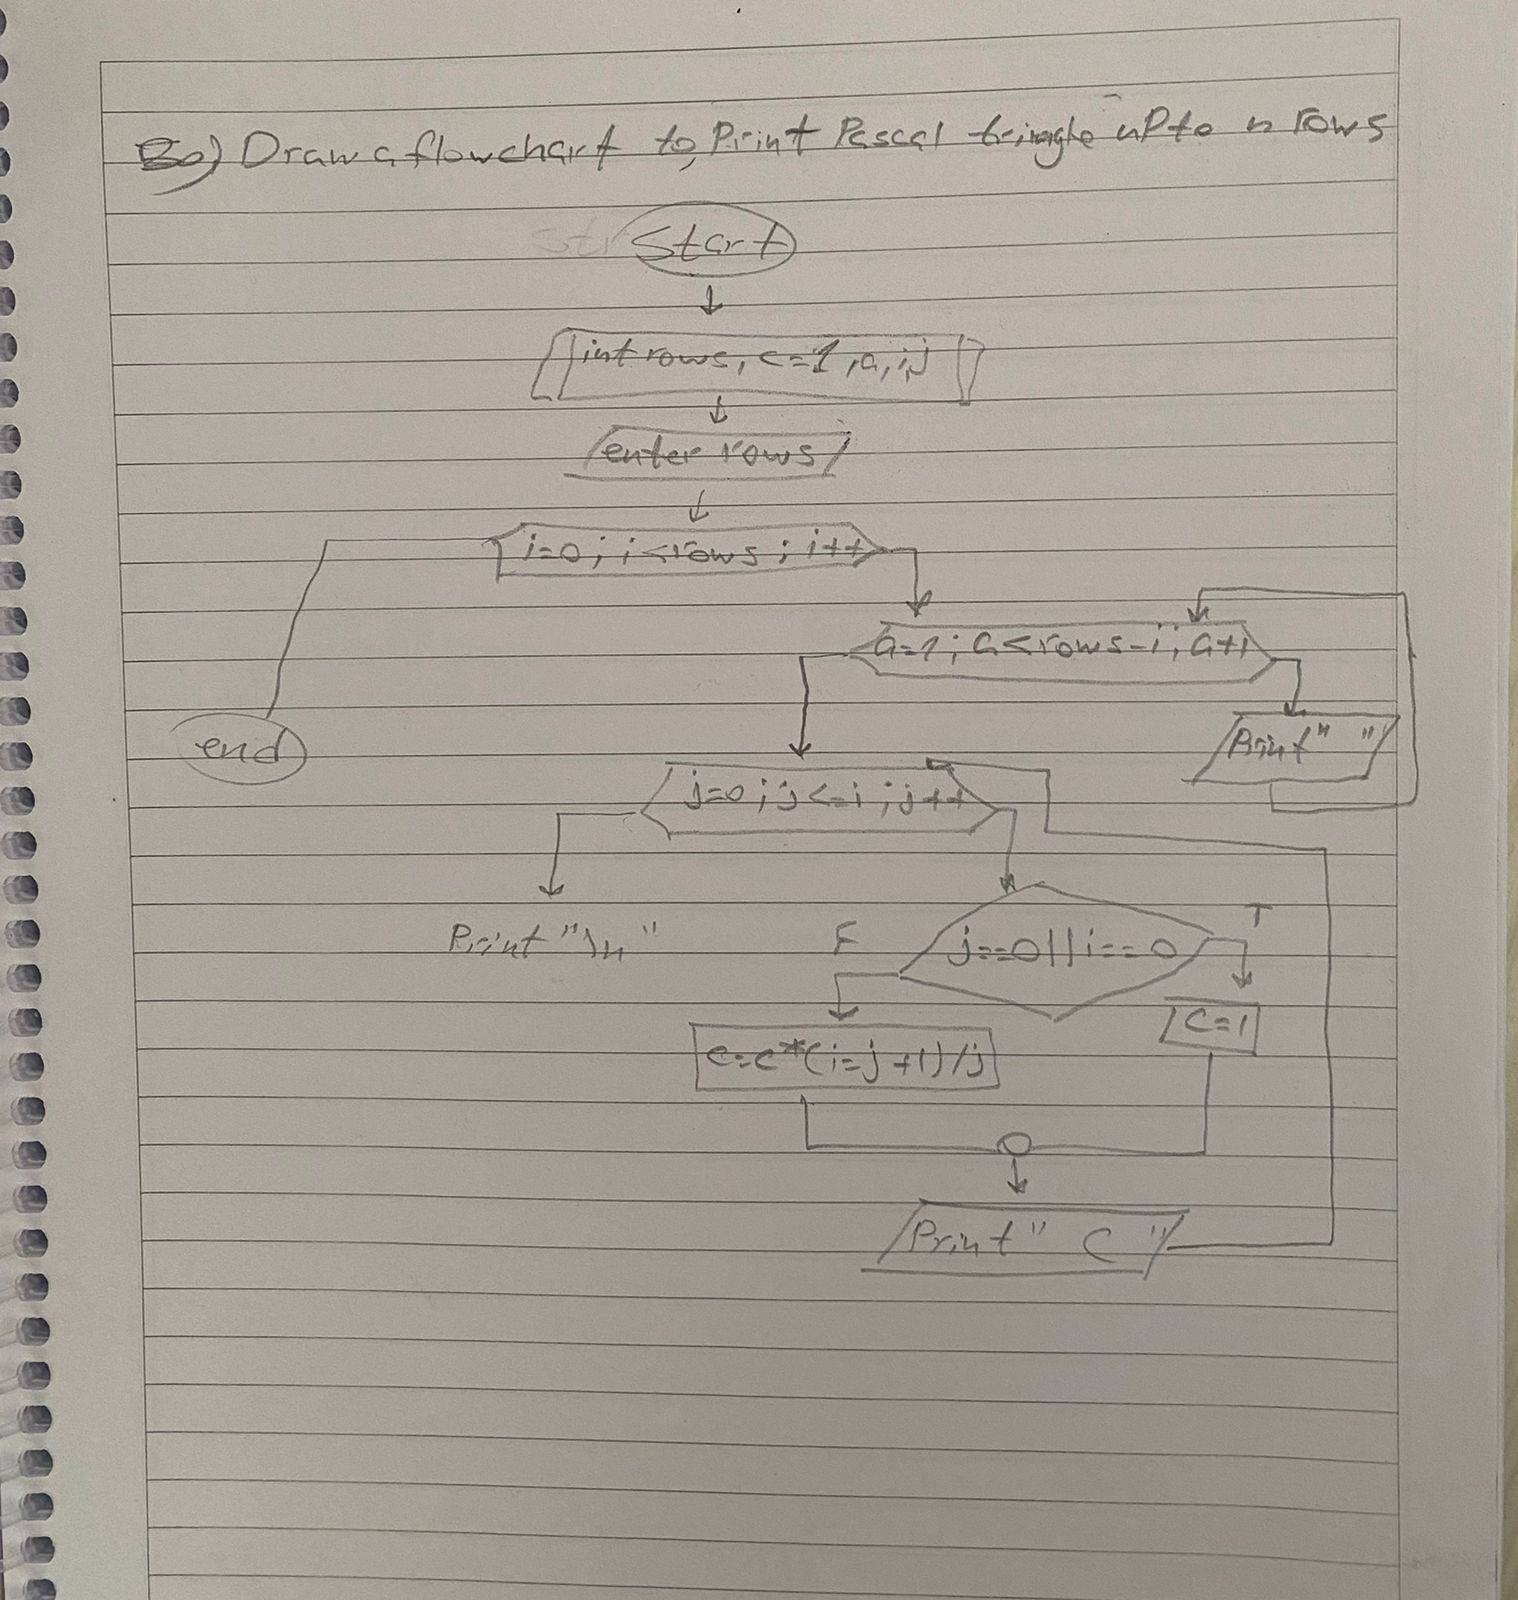 Bo) Draw a flowchart to Print Pascal tringle upto n rows
str
Start
int rows, c=1, a, i, j
enter rows
i=0; i<rows; i++
a=1; a<rows-i; a++
end
Print" "
j=0; j<=i; j++
Print "\n"
F
j==0||i==0
T
c=1
c=c*(i=j+1)/j
Print" C "